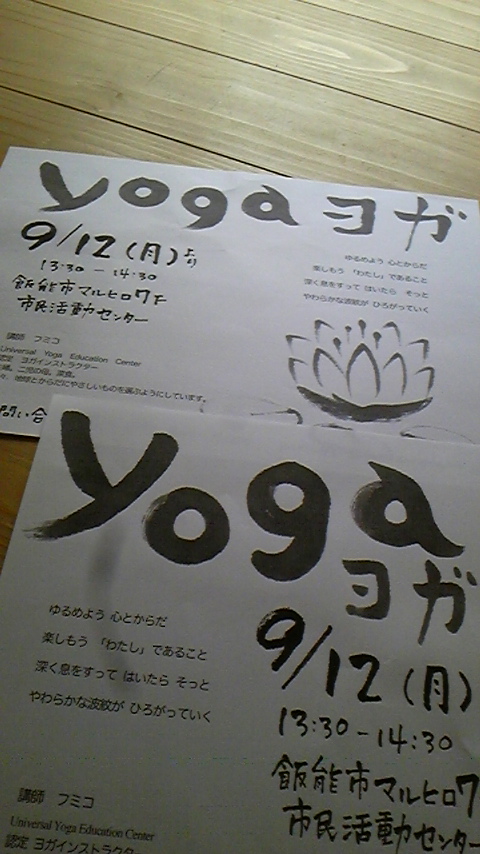 yoga ヨガ
9/12(月)より
13:30-14:30
飯能市マルヒロ7F
市民活動センター
ゆるめよう 心とからだ
楽しもう 「わたし」であること
深く息をすって はいたら そっと
やわらかな波紋が ひろがっていく
講師 フミコ
Universal Yoga Education Center
認定 ヨガインストラクター
二児の母。
地球とからだにやさしいものを選ぶようにしています。
問い合
yoga
ヨガ
9/12(月)
13:30-14:30
飯能市マルヒロ7
市民活動センター
ゆるめよう 心とからだ
楽しもう 「わたし」であること
深く息をすって はいたら そっと
やわらかな波紋が ひろがっていく
講師 フミコ
Universal Yoga Education Center
認定 ヨガインストラクタ